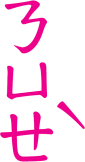 ㄋㄩㄝˋ